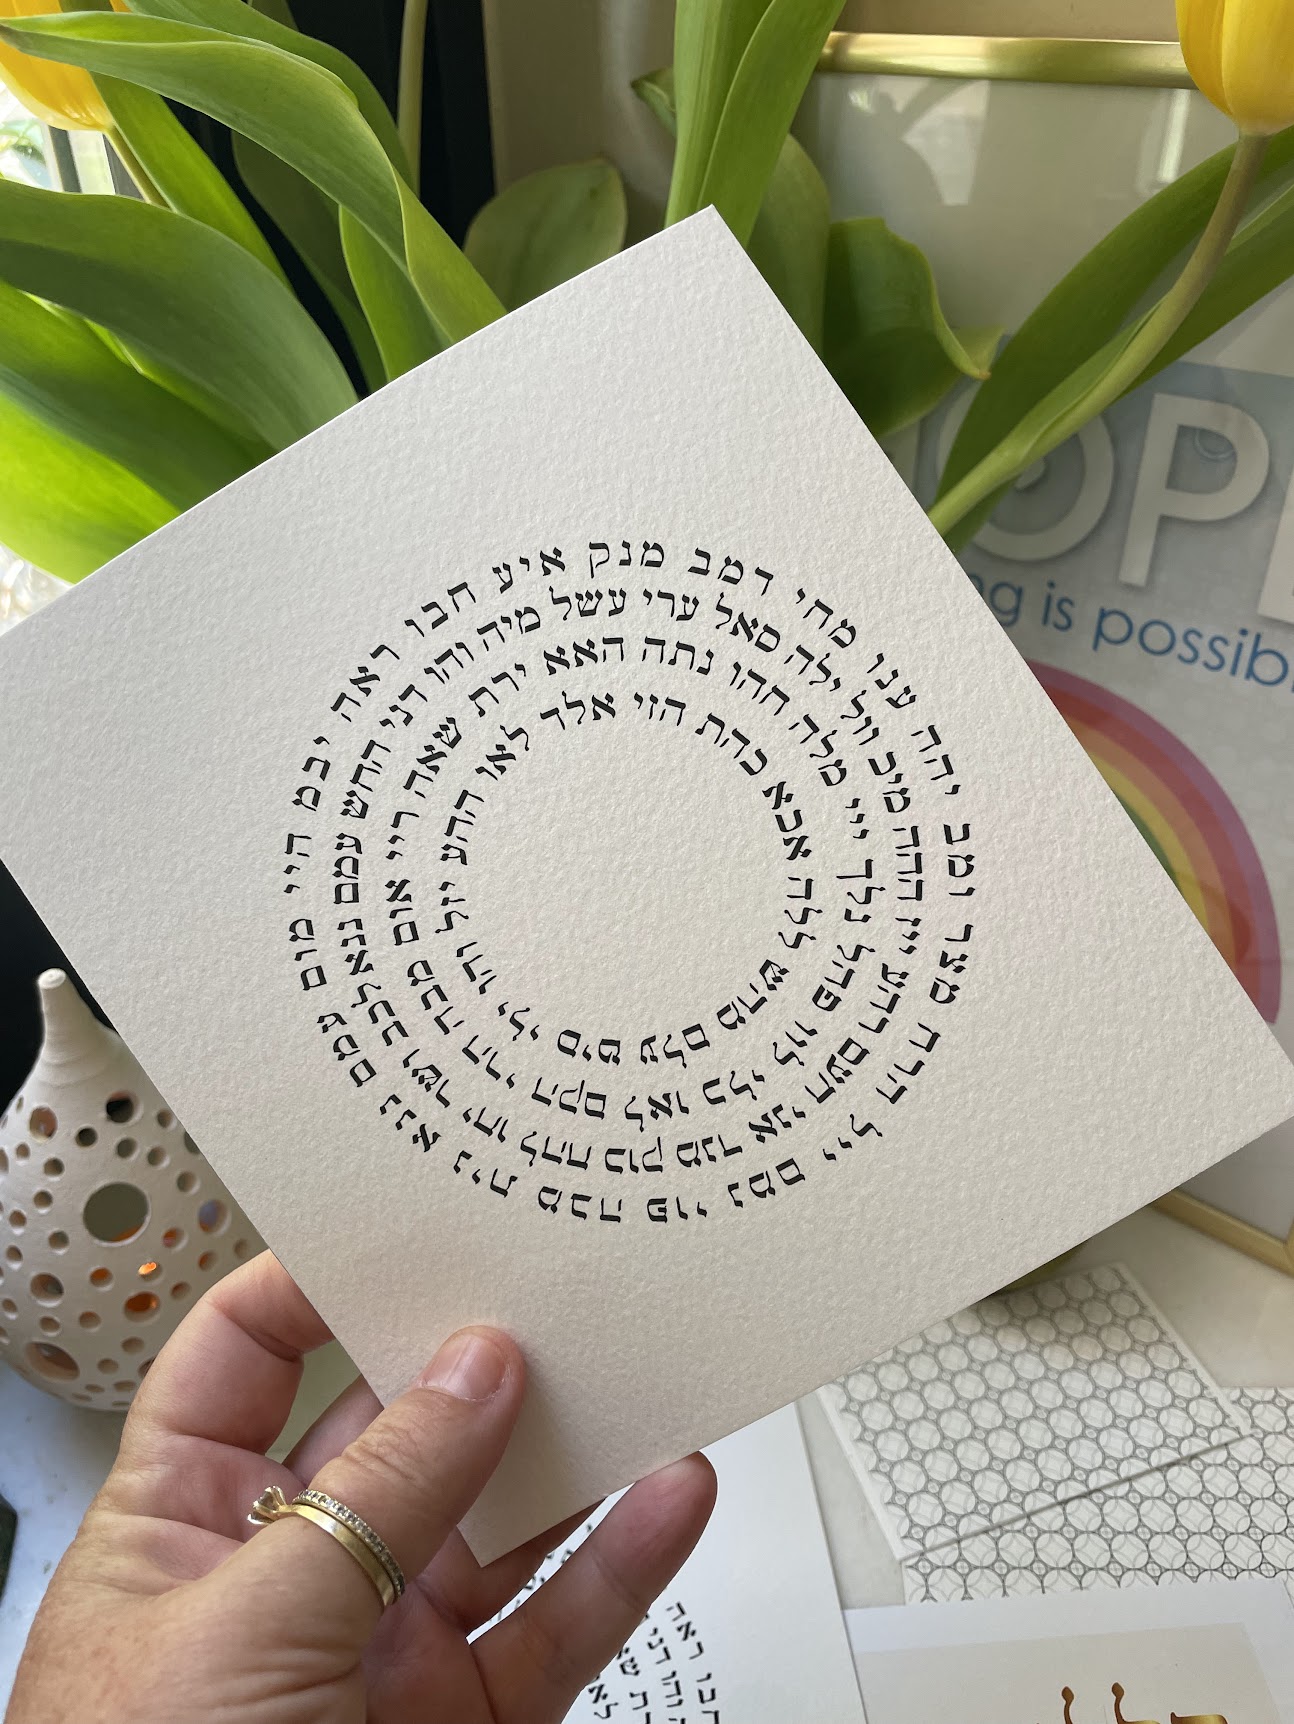 והו ילי סיט עלם מהש ללה אכא כהת הזי אלד לאו ההע יזל
מבה הרי הקם לאו כלי לוו פהל נלך ייי מלה חהו נתה האא ירת שאה ריי אום
לכב ושר יחו להח כוק מנד אני חעם רהע ייז ההה מיכ וול ילה סאל ערי עשל מיה והו דני החש עמם ננא
עמם ננא נית מבה פוי נמם ייל הרח מצר ומב יהה ענו מחי דמב מנק איע חבו ראה יבמ היי מום
HOPE
is possib